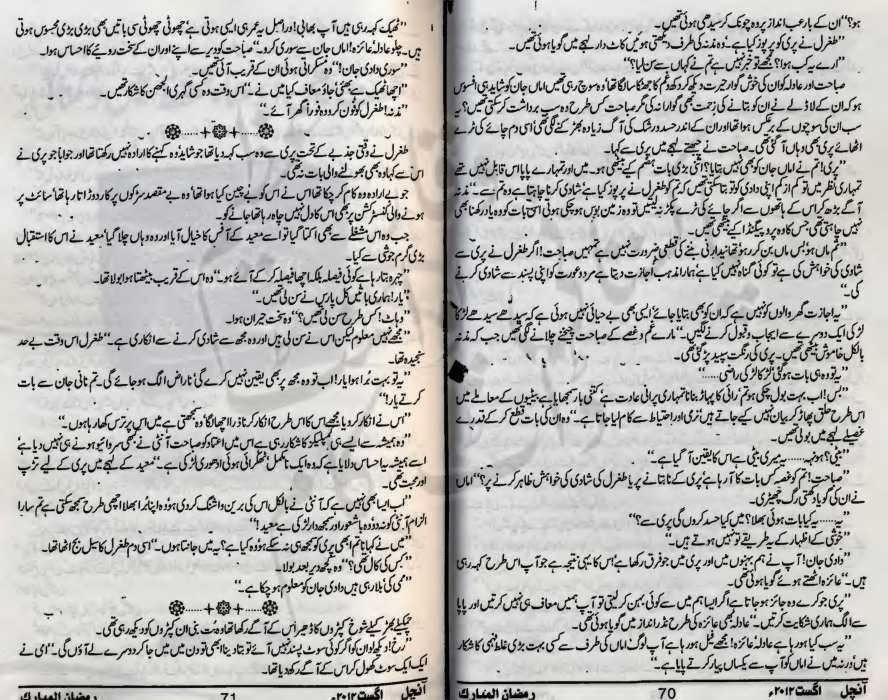 ہو؟“ ان کے بارعب انداز پر وہ چونک کر سیدھی ہوئی تھیں۔
”طغرل نے پری کو پرپوز کیا ہے۔“ وہ مذنہ کی طرف دیکھتی ہوئیں کاٹ دار لہجے میں گویا ہوئی تھیں۔
”ارے یہ کب ہوا؟ مجھے تو خبر نہیں ہے تم نے کہاں سے سن لیا؟“
صباحت اور عادلہ کو ان کی خوش گوار حیرت دیکھ کر دکھ و غم کا جھٹکا سا لگا تھا وہ سوچ رہی تھیں اماں جان کو شاید ہی افسوس
ہو کہ ان کے لاڈلے نے ان کو بتانے کی زحمت بھی گوارا نہ کی مگر صباحت کس طرح وہ سب برداشت کر سکتی تھیں؟ یہ
سب ان کی سوچوں کے برعکس ہوا تھا اور ان کے اندر حسد و رشک کی آگ زیادہ بھڑکنے لگی تھی اسی دم چائے کی ٹرے
اٹھائے پری وہاں آئی تھی۔ صباحت نے چبھتے لہجے میں پری سے کہا۔
”پری! تم نے اماں جان کو بھی نہیں بتایا؟ اتنی بڑی بات ہضم کیے بیٹھی ہو۔ میں اور تمہارے پاپا اس قابل نہیں تھے
تمہاری نظر میں تو کم از کم اپنی دادی کو تو بتا سکتی تھیں کہ تم کو طغرل نے پرپوز کیا ہے شادی کرنا چاہتا ہے وہ تم سے۔“ مذنہ
آگے بڑھ کر اس کے ہاتھوں سے اگر چائے کی ٹرے پکڑ نہ لیتیں تو وہ زمین بوس ہو چکی ہوتی اس بات کو وہ یاد رکھنا بھی
نہیں چاہتی تھی جس کا وہ پروپیگنڈا کیے بیٹھی تھیں۔
”تم ماں ہو بس ماں بن کر رہو تھانیدارنی بننے کی قطعی ضرورت نہیں ہے تمہیں صباحت! اگر طغرل نے پری سے
شادی کی خواہش کی ہے تو کوئی گناہ نہیں کیا ہے ہمارا مذہب اجازت دیتا ہے مرد و عورت کو اپنی پسند سے شادی کرنے
کی۔“
”یہ اجازت گھر والوں کو نہیں ہے کہ ان کو بھی بتایا جائے ایسی بھی بے حیائی نہیں ہوئی ہے کہ سیدھے سیدھے لڑکا
لڑکی ایک دوسرے سے ایجاب و قبول کرنے لگیں۔“ مارے غم و غصے کے صباحت چیخنے چلانے لگی تھیں جب کہ مذنہ
بالکل خاموش بیٹھی تھیں۔ پری کی رنگت سپید پڑ گئی تھی۔
”یہ تو وہ ہی بات ہو گئی لڑکا لڑکی راضی......“
”بس! اب بہت بول چکی ہو تم رائی کا پہاڑ بنانا تمہاری پرانی عادت ہے کتنی بار سمجھایا ہے بیٹیوں کے معاملے میں
اس طرح حلق پھاڑ کر بیان نہیں کیے جاتے ہیں نرمی اور احتیاط سے کام لیا جاتا ہے۔“ وہ ان کی بات قطع کر کے قدرے
غصیلے لہجے میں بولی تھیں۔
”بیٹی؟ ہونہہ...... یہ میری بیٹی ہے اس کا یقین آ گیا ہے۔“
”صباحت! تم کو غصہ کس بات کا آ رہا ہے پری کے نا بتانے پر یا طغرل کی شادی کی خواہش ظاہر کرنے پر؟“ اماں
نے ان کی گویا دکھتی رگ چھیڑی۔
”یہ...... یہ کیا بات ہوئی بھلا؟ میں کیا حسد کروں گی پری سے؟“
”خوشی کے اظہار کے یہ طریقے تو نہیں ہوتے ہیں۔“
”دادی جان! آپ نے ہم بہنوں میں اور پری میں جو فرق رکھا ہے اس کا یہی نتیجہ ہے جو آپ اس طرح کہہ رہی
ہیں۔“ عائزہ اٹھتے ہوئے گویا ہوئی تھی۔
”پری جو کرے وہ جائز ہو جاتا ہے اگر ایسا ہم میں سے کوئی بہن کر لیتی تو آپ ہمیں معاف ہی نہیں کرتیں اور پاپا
سے الگ ہماری شکایت کرتیں۔“ عادلہ بھی عائزہ کی طرح نڈر انداز میں گویا ہوئی تھی۔
”یہ سب کیا ہو رہا ہے عادلہ عائزہ! مجھے فیل ہو رہا ہے آپ لوگ اماں کی طرف سے کسی بہت بڑی غلط فہمی کا شکار
ہیں ورنہ میں نے اماں کو آپ سے یکساں پیار کرتے پایا ہے۔“
آنچل اگست ۲۰۱۲ء 70 رمضان المبارک
”ٹھیک کہہ رہی ہیں آپ بھابی! دراصل یہ عمر ہی ایسی ہوتی ہے چھوٹی چھوٹی سی باتیں بھی بڑی بڑی محسوس ہوتی
ہیں۔ چلو عادلہ عائزہ! اماں جان سے سوری کرو۔“ صباحت کو دیر سے اپنے اور ان کے سخت رویئے کا احساس ہوا۔
”سوری دادی جان!“ وہ مسکراتی ہوئی ان کے قریب آئی تھیں۔
”اچھا ٹھیک ہے بھئی جاؤ معاف کیا میں نے۔“ اس وقت وہ کسی گہری الجھن کا شکار تھیں۔
”مذنہ! طغرل کو فون کرو وہ فوراً گھر آئے۔“
طغرل نے وقتی جذبے کے تحت پری سے وہ سب کہہ دیا تھا جو شاید وہ کہنے کا ارادہ نہیں رکھتا تھا اور جواباً جو پری نے
اس سے کہا وہ بھی بھولنے والی بات نہ تھی۔
جو بے ارادہ وہ کام کر چکا تھا اس نے اس کو بے چین کیا ہوا تھا وہ بے مقصد سڑکوں پر کار دوڑاتا رہا تھا سائٹ پر
ہونے والی کنسٹرکشن پر بھی اس کا دل نہیں چاہ رہا تھا جانے کو۔
جب وہ اس مشغلے سے بھی اکتا گیا تو اسے معید کے آفس کا خیال آیا اور وہ وہاں چلا گیا معید نے اس کا استقبال
بڑی گرم جوشی سے کیا۔
”چہرہ بتا رہا ہے کوئی فیصلہ بلکہ اچھا فیصلہ کر کے آئے ہو۔“ وہ اس کے قریب بیٹھتا ہوا بولا تھا۔
”یار! ہماری باتیں کل پارس نے سن لی تھیں۔“
”وہاٹ! کس طرح سن لی تھیں؟“ وہ سخت حیران ہوا۔
”مجھے نہیں معلوم لیکن اس نے سن لی ہیں اور وہ مجھ سے شادی کرنے سے انکاری ہے۔“ طغرل اس وقت بے حد
سنجیدہ تھا۔
”یہ تو بہت برا ہوا یار! اب تو وہ مجھ پر بھی یقین نہیں کرے گی ناراض الگ ہو جائے گی۔ تم نانی جان سے بات
کرتے یار!“
”اس نے انکار کر دیا مجھے اس کا اس طرح انکار کرنا ذرا اچھا لگا وہ سمجھتی ہے میں اس پر ترس کھا رہا ہوں۔“
”وہ ہمیشہ سے ایسے ہی کمپلیکز کا شکار رہی ہے اس میں اعتماد کو صباحت آنٹی نے بھی سروائیو ہونے ہی نہیں دیا ہے
اسے ہمیشہ یہ احساس دلایا ہے کہ وہ ایک نامکمل ٹھکرائی ہوئی ادھوری لڑکی ہے۔“ معید کے لہجے میں پری کے لیے تڑپ
اور محبت تھی۔
”اب ایسا بھی نہیں ہے کہ آنٹی نے بالکل اس کی برین واشنگ کر دی ہو وہ اپنا برا بھلا اچھی طرح سمجھ سکتی ہے تم سارا
الزام آنٹی کو نہ دو وہ باشعور اور سمجھ دار لڑکی ہے معید!“
”میں نے کہا نا تم ابھی پری کو سمجھ ہی نہ سکے ہو وہ کیا ہے؟ یہ میں جانتا ہوں۔“ اسی دم طغرل کا سیل بج اٹھا تھا۔
”کس کی کال تھی؟“ وہ کچھ دیر بعد بولا۔
”ممی کی بلا رہی ہیں دادی جان کو معلوم ہو چکا ہے۔“
چمکیلے بھڑکیلے شوخ کپڑوں کا ڈھیر اس کے آگے رکھا تھا وہ بت بنی ان کپڑوں کو دیکھ رہی تھی۔
”رخ! دیکھ لو ان کو اگر کوئی سوٹ پسند نہیں آئے تو بتا دینا ابھی تو دن میں میں جا کر دوسرے لے آؤں گی۔“ امی نے
ایک ایک سوٹ کھول کر اس کے آگے رکھ دیا تھا۔
آنچل اگست ۲۰۱۲ء 71 رمضان المبارک